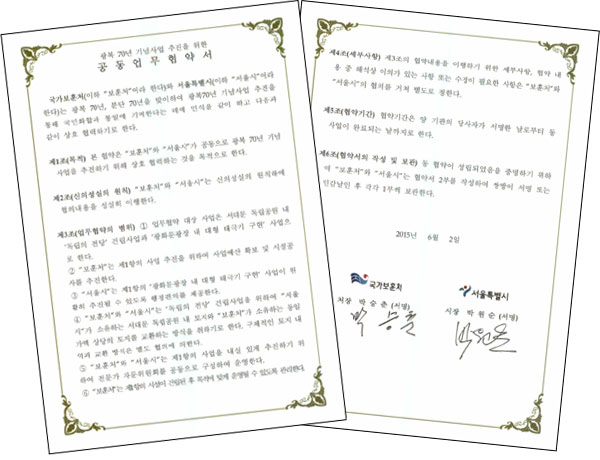 광복 70년 기념사업 추진을 위한
공동업무협약서
국가보훈처(이하 "보훈처"이라 한다)와 서울특별시(이하 "서울시"이라
한다)는 광복 70년, 분단 70년을 맞이하여 광복70년 기념사업 추진을
통해 국민화합과 통일에 기여한다는 데에 인식을 같이 하고 다음과
같이 상호 협력하기로 한다.
제1조(목적) 본 협약은 "보훈처"와 "서울시"가 공동으로 광복 70년 기념
사업을 추진하기 위해 상호 협력하는 것을 목적으로 한다.
제2조(신의성실의 원칙) "보훈처"와 "서울시"는 신의성실의 원칙하에
협의내용을 성실히 이행한다.
제3조(업무협약의 범위) ① 업무협약 대상 사업은 서대문 독립공원 내
'독립의 전당' 건립사업과 '광화문광장 내 대형 태극기 구현' 사업으
로 한다.
② "보훈처"는 제1항의 사업 추진을 위하여 사업예산 확보 및 시설공
사를 추진한다.
③ "서울시"는 제1항의 '광화문광장 내 대형 태극기 구현' 사업이 원
활히 추진될 수 있도록 행정편의를 제공한다.
④ "보훈처"와 "서울시"는 '독립의 전당' 건립사업을 위하여 "서울
시"가 소유하는 서대문 독립공원 내 토지와 "보훈처"가 소유하는 동일
가액 상당의 토지를 교환하는 방식을 취하기로 한다. 구체적인 토지 내
역과 교환 방식은 별도 협의에 의한다.
⑤ "보훈처"와 "서울시"는 제1항의 사업을 내실 있게 추진하기 위
하여 전문가 자문위원회를 공동으로 구성하여 운영한다.
⑥ "보훈처"는 제1항의 시설이 건립된 후 목적에 맞게 운영될 수 있도록 관리한다.
제4조(세부사항) 제3조의 협약내용을 이행하기 위한 세부사항, 협약 내
용 중 해석상 이의가 있는 사항 또는 수정이 필요한 사항은 "보훈처"와
"서울시"의 협의를 거쳐 별도로 정한다.
제5조(협약기간) 협약기간은 양 기관의 당사자가 서명한 날로부터 동
사업이 완료되는 날까지로 한다.
제6조(협약서의 작성 및 보관) 동 협약이 성립되었음을 증명하기 위하
여 "보훈처"와 "서울시"는 협약서 2부를 작성하여 쌍방이 서명 또는
인감날인 후 각각 1부씩 보관한다.
2015년 6월 2일
국가보훈처
처장 박승춘 (서명)
박승춘
서울특별시
시장 박원순 (서명)
박원순